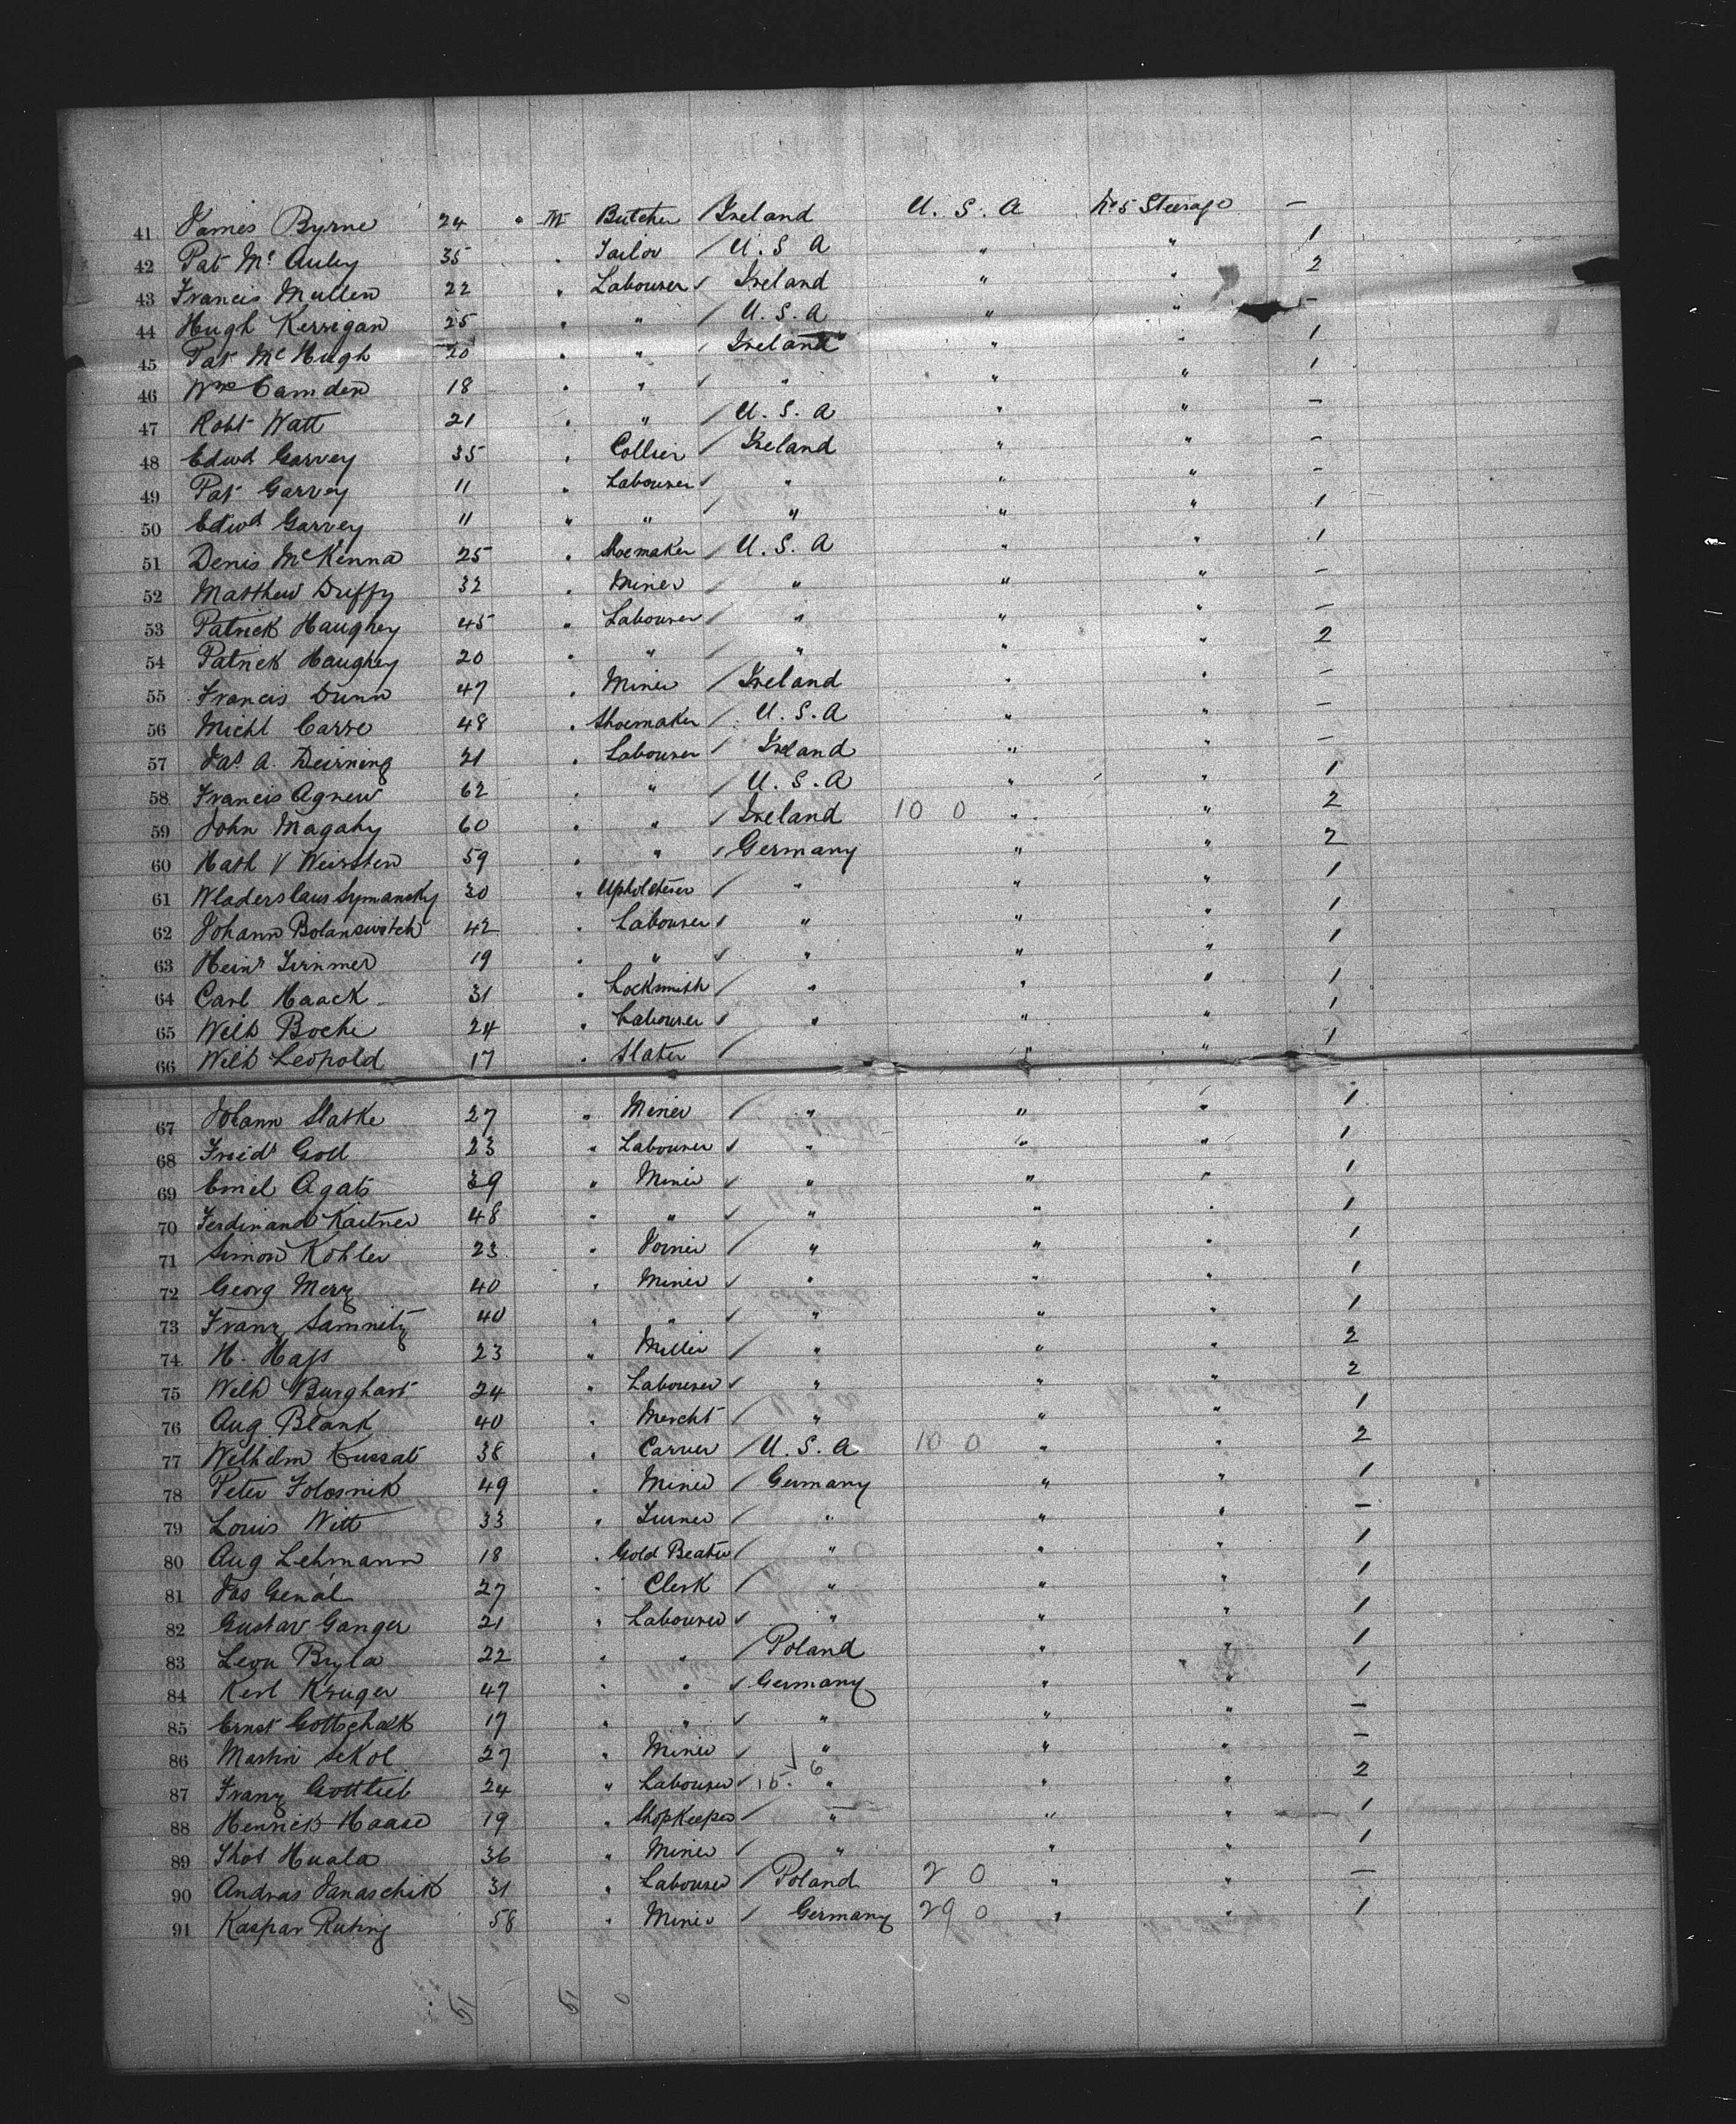 41 James Byrne 24 " M Butcher / Ireland U. S. A No 5 Steerage –
42 Pat Mc Auley 35 " Tailor / U. S. A " " 1
43 Francis Mullen 22 " Labourer / Ireland " " 2
44 Hugh Kerrigan 25 " " / U. S. A " " –
45 Pat McHugh 20 " " / Ireland " " 1
46 Wm Camden 18 " " / " " " 1
47 Robt Watt 21 " " / U. S. A " " –
48 Edwd Garvey 35 " Collier / Ireland " " –
49 Pat Garvey 11 " Labourer / " " " –
50 Edwd Garvey 11 " " / " " " 1
51 Denis McKenna 25 " Shoemaker / U. S. A " " 1
52 Matthew Duffy 32 " Miner / " " " –
53 Patrick Haughey 45 " Labourer / " " " –
54 Patrick Haughey 20 " " / " " " 2
55 Francis Dunn 47 " Miner / Ireland " " –
56 Michl Carre 48 " Shoemaker / U. S. A " " –
57 Jas A. Deirning 21 " Labourer / Ireland " " –
58 Francis Agnew 62 " " / U. S. A " " 1
59 John Magahy 60 " " / Ireland 10 0 " " 2
60 Math V Weirsten 59 " " / Germany " " 2
61 Wladerslaus Symansky 30 " Upholsterer / " " " 1
62 Johann Bolanswitch 42 " Labourer / " " " 1
63 Heinr 19 " " / " " " 1
64 Carl Haack 31 " Locksmith / " " " 1
65 Wilh Bocke 24 " Labourer / " " " 1
66 Wilh Leopold 17 " Slater / " " 1
67 Johann Slatke 27 " Miner / " " " 1
68 Freidr Goll 23 " Labourer / " " " 1
69 Emil Agats 39 " Miner / " " " 1
70 Ferdinand Kaitner 48 " " / " " " 1
71 Simon Kohler 23 " Joiner / " " " 1
72 Georg Merz 40 " Miner / " " " 1
73 Franz Samnitz 40 " " / " " " 1
74 H. Hass 23 " Miller / " " " 2
75 Wilh Burghart 24 " Labourer / " " " 2
76 Aug. Blank 40 " Mercht / " " " 1
77 Wilhelm Kussat 38 " Carver / U. S. A 10 0 " " 2
78 Peter Folosnik 49 " Miner / Germany " " 1
79 Louis Witt 33 " Turner / " " " –
80 Aug Lehmann 18 " Gold Beater / " " " 1
81 Jos Genal 27 " Clerk / " " " 1
82 Gustav Ganger 21 " Labourer / " " " 1
83 Leon Bryla 22 " " / Poland " " 1
84 Karl Kruger 47 " " / Germany " " 1
85 Ernst Gottschalk 17 " " / " " " –
86 Martin Sekol 27 " Miner / " " " –
87 Franz Gottlieb 24 " Labourer / 15. 6 " " " 2
88 Henrick Haase 19 " Shopkeeper / " " " 1
89 Thos Huala 36 " Miner / " " " 1
90 Andras Janaschik 31 " Labourer / Poland 2 0 " " –
91 Kaspar Ruting 58 " Miner / Germany 29 0 " " 1
51 51 0